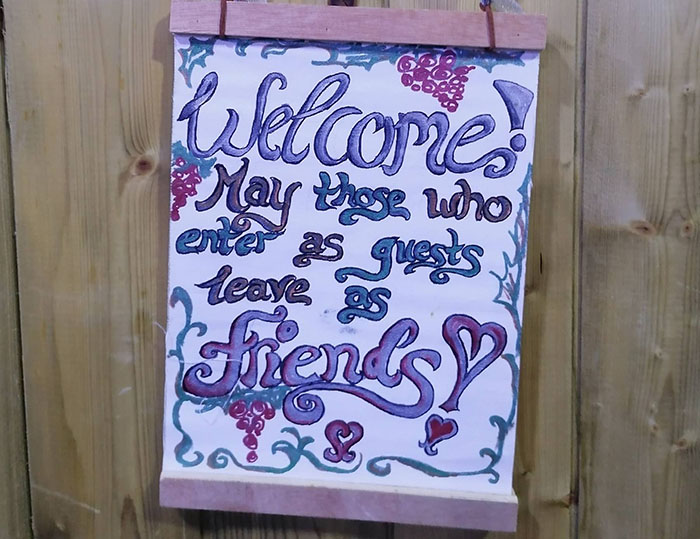 Welcome!
May those who
enter as guests
leave as
Friends